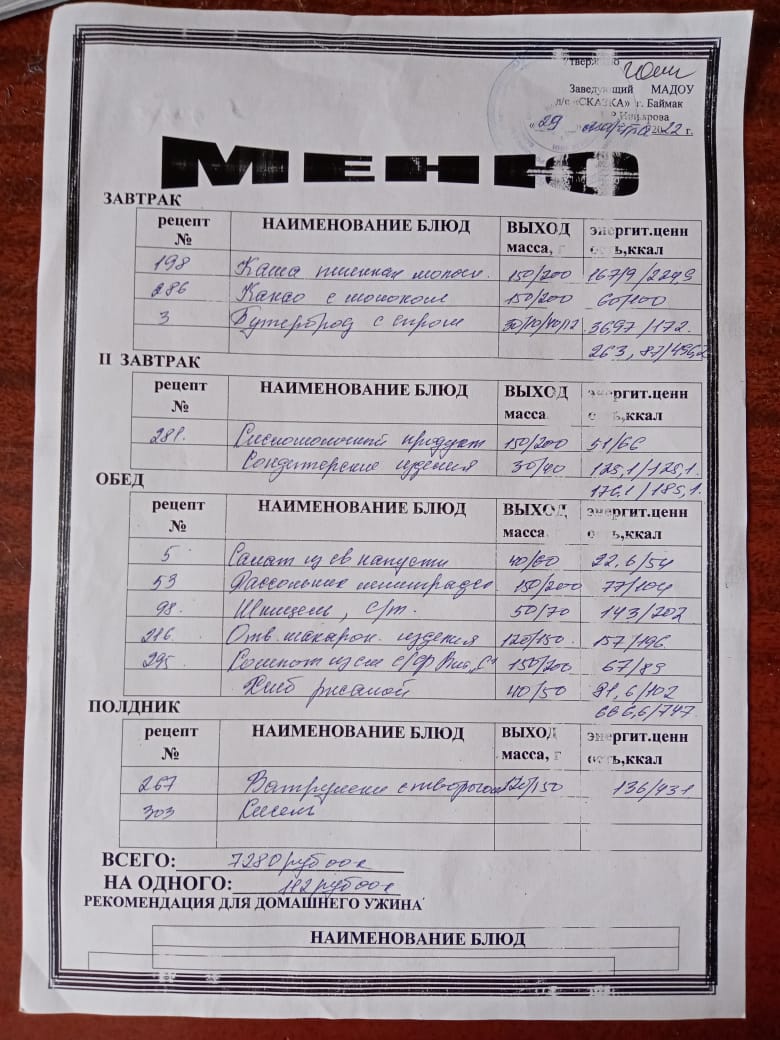 Утверждаю
Заведующий МАДОУ
д/с «СКАЗКА» г. Баймак
«29» марта 2022 г.
МЕНЮ
ЗАВТРАК
рецепт № НАИМЕНОВАНИЕ БЛЮД ВЫХОД масса, г энергит.ценн ость,ккал
198 Каша пшенная молочн. 150/200 167/9/224,9
286 Какао с молоком 150/200 60/100
3 Бутерброд с сыром 36,97/172.
263,87/496,2
II ЗАВТРАК
рецепт № НАИМЕНОВАНИЕ БЛЮД ВЫХОД масса энергит.ценн ость,ккал
281. Кисломолочный продукт 150/200 51/66
Кондитерские изделия 30/40 125,1/125,1.
176,1/185,1.
ОБЕД
рецепт № НАИМЕНОВАНИЕ БЛЮД ВЫХОД масса энергит.ценн ость,ккал
5 Салат из св капусты 40/60 22,6/54
53 Рассольник ленинградс. 150/200 77/104
98. Шницель, с/т. 50/70 143/202
216. Отв. макарон. изделия 120/150. 157/196.
295. Компот из см с/ф Вит „С" 150/200 67/89
Хлеб ржаной 40/50 91,6/102
666,6/747
ПОЛДНИК
рецепт № НАИМЕНОВАНИЕ БЛЮД ВЫХОД масса, г энергит.ценн ость,ккал
267 Ватрушки с творогом 120/150 136/431
303 Кисель
ВСЕГО: 7280 руб 00 к
НА ОДНОГО: 112 руб 00 к
РЕКОМЕНДАЦИЯ ДЛЯ ДОМАШНЕГО УЖИНА
НАИМЕНОВАНИЕ БЛЮД